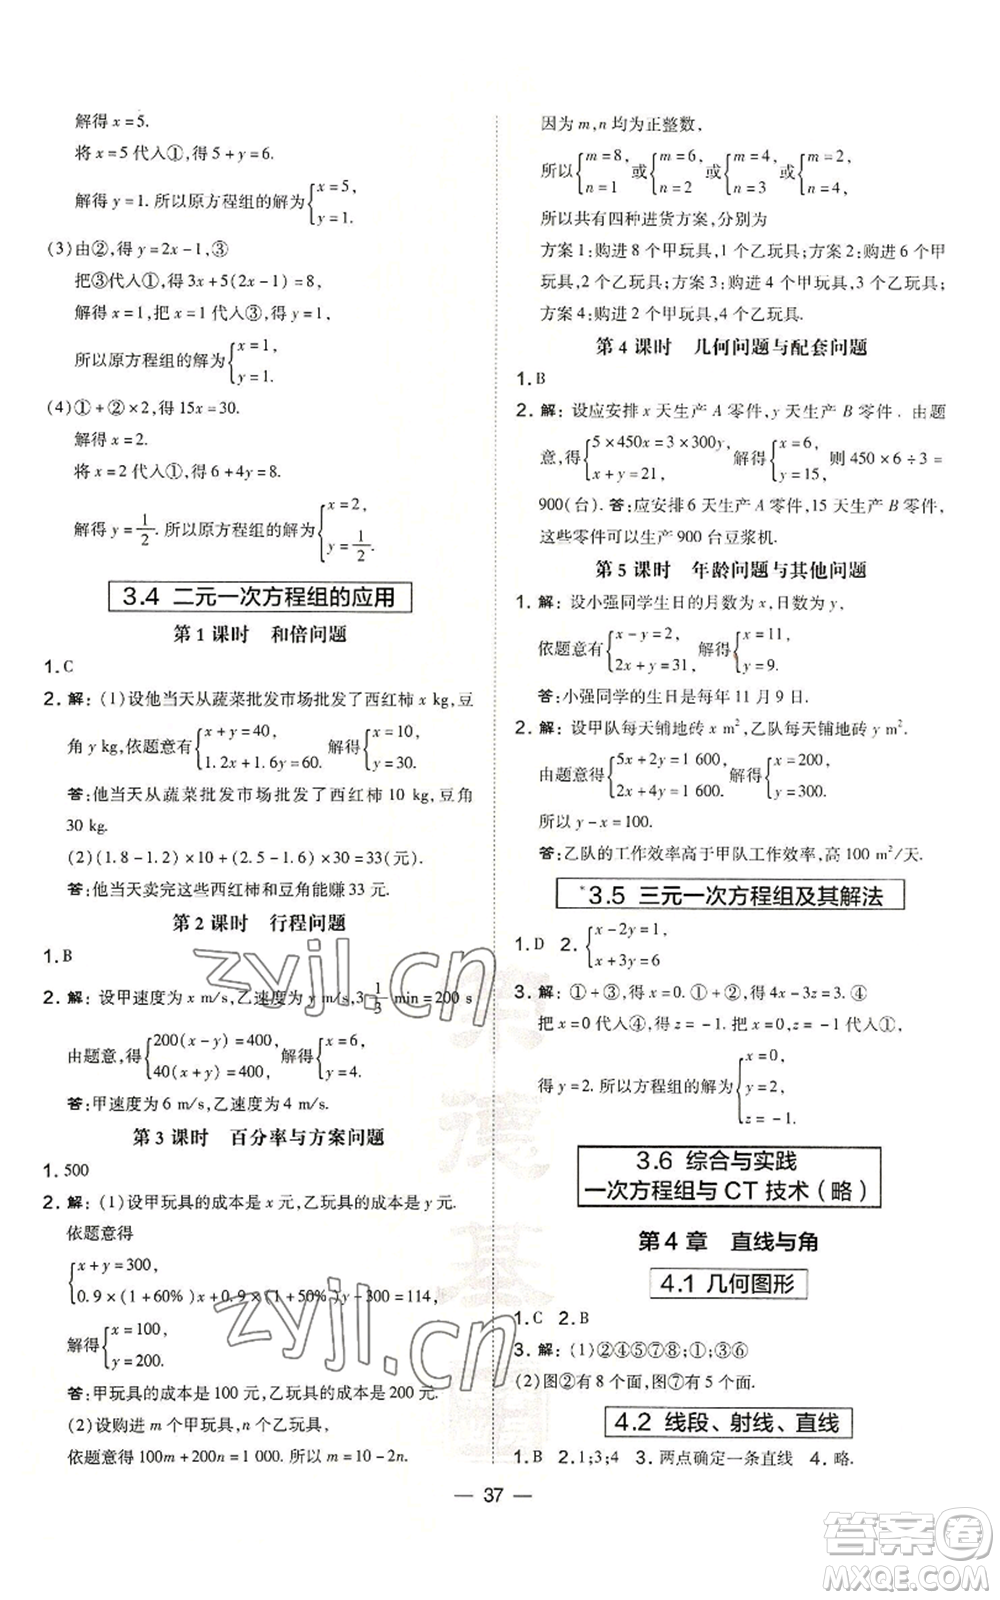 解得 x=5.
将 x=5 代入①,得 5+y=6.
解得 y=1. 所以原方程组的解为{x=5, y=1.
(3)由②,得 y=2x-1,③
把③代入①,得 3x+5(2x-1)=8,
解得 x=1,把 x=1 代入③,得 y=1,
所以原方程组的解为{x=1, y=1.
(4)①+②×2,得 15x=30.
解得 x=2.
将 x=2 代入①,得 6+4y=8.
解得 y=1/2. 所以原方程组的解为{x=2, y=1/2.
3.4 二元一次方程组的应用
第 1 课时 和倍问题
1. C
2. 解:(1)设他当天从蔬菜批发市场批发了西红柿 x kg,豆
角 y kg,依题意有{x+y=40, 1.2x+1.6y=60. 解得{x=10, y=30.
答:他当天从蔬菜批发市场批发了西红柿 10 kg,豆角
30 kg.
(2)(1.8-1.2)×10+(2.5-1.6)×30=33(元).
答:他当天卖完这些西红柿和豆角能赚 33 元.
第 2 课时 行程问题
1. B
2. 解:设甲速度为 x m/s,乙速度为 y m/s,3 1/3 min=200 s
由题意,得{200(x-y)=400, 40(x+y)=400. 解得{x=6, y=4.
答:甲速度为 6 m/s,乙速度为 4 m/s.
第 3 课时 百分率与方案问题
1. 500
2. 解:(1)设甲玩具的成本是 x 元,乙玩具的成本是 y 元.
依题意得
{x+y=300, 0.9×(1+60%)x+0.9×(1+50%)y-300=114,
解得{x=100, y=200.
答:甲玩具的成本是 100 元,乙玩具的成本是 200 元.
(2)设购进 m 个甲玩具,n 个乙玩具,
依题意得 100m+200n=1 000. 所以 m=10-2n.
因为 m,n 均为正整数,
所以{m=8, n=1 或{m=6, n=2 或{m=4, n=3 或{m=2, n=4.
所以共有四种进货方案,分别为
方案 1:购进 8 个甲玩具,1 个乙玩具;方案 2:购进 6 个甲
玩具,2 个乙玩具;方案 3:购进 4 个甲玩具,3 个乙玩具;
方案 4:购进 2 个甲玩具,4 个乙玩具.
第 4 课时 几何问题与配套问题
1. B
2. 解:设应安排 x 天生产 A 零件,y 天生产 B 零件. 由题
意,得{5×450x=3×300y, x+y=21, 解得{x=6, y=15, 则 450×6÷3=
900(台). 答:应安排 6 天生产 A 零件,15 天生产 B 零件,
这些零件可以生产 900 台豆浆机.
第 5 课时 年龄问题与其他问题
1. 解:设小强同学生日的月数为 x,日数为 y,
依题意有{x-y=2, 2x+y=31, 解得{x=11, y=9.
答:小强同学的生日是每年 11 月 9 日.
2. 解:设甲队每天铺地砖 x m²,乙队每天铺地砖 y m².
由题意得{5x+2y=1 600, 2x+4y=1 600. 解得{x=200, y=300.
所以 y-x=100.
答:乙队的工作效率高于甲队工作效率,高 100 m²/天.
*3.5 三元一次方程组及其解法
1. D 2. {x-2y=1, x+3y=6
3. 解:①+③,得 x=0. ①-②,得 4x-3z=3. ④
把 x=0 代入④,得 z=-1. 把 z=-1 代入①,
得 y=2. 所以方程组的解为{x=0, y=2, z=-1.
3.6 综合与实践
一次方程组与 CT 技术(略)
第 4 章 直线与角
4.1 几何图形
1. C 2. B
3. 解:(1)②④⑤⑦⑧;①;③⑥
(2)图②有 8 个面,图⑦有 5 个面.
4.2 线段、射线、直线
1. B 2. 1;3;4 3. 两点确定一条直线 4. 略.
— 37 —
zyjl.cn
zyjl.cn
答案卷
MXQE.COM